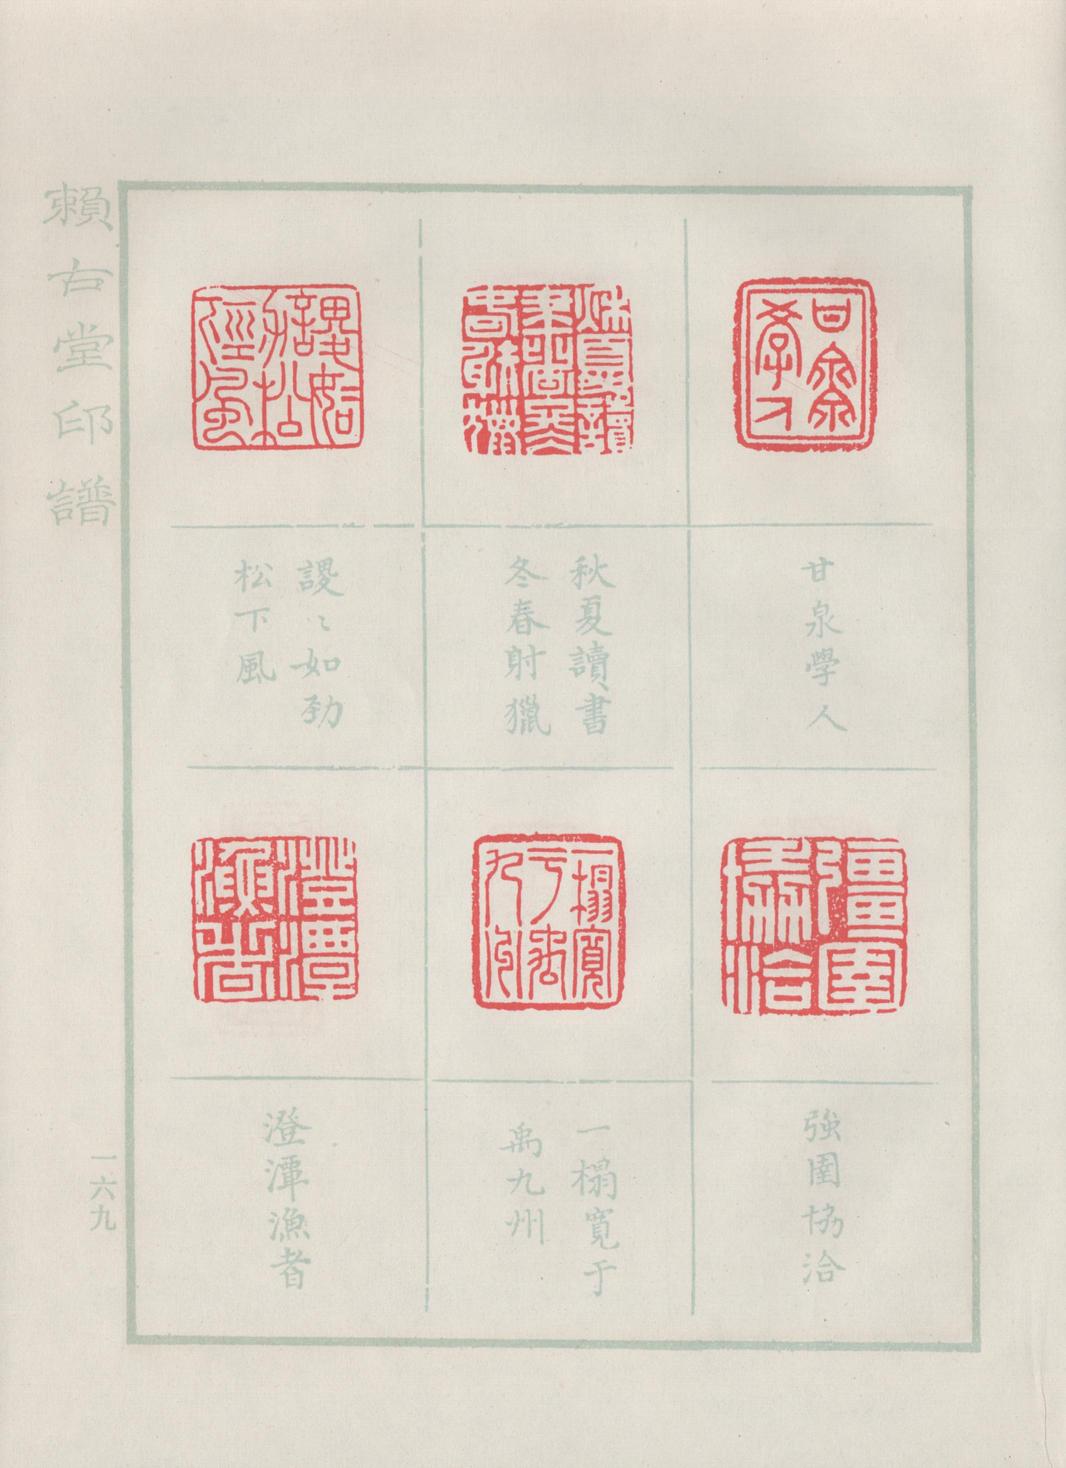 賴古堂印譜
甘泉學人
秋夏讀書
冬春射獵
謖〻如勁
松下風
強圉協洽
一榻寬于
禹九州
澄潭漁者
一六九